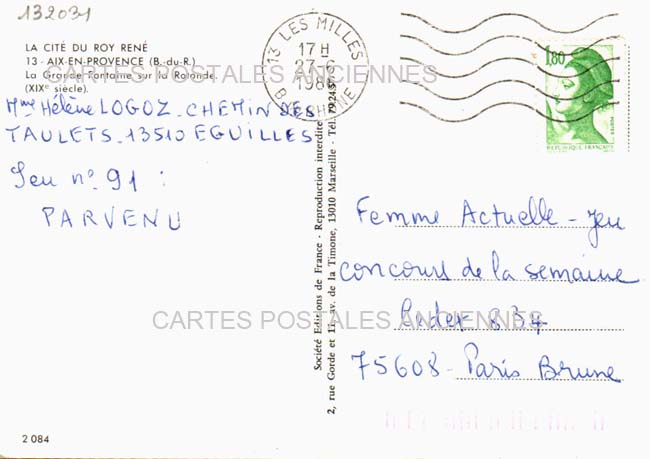 132031
LA CITÉ DU ROY RENÉ
13 - AIX-EN-PROVENCE (B.-du-R.)
La Grande Fontaine sur la Rotonde.
(XIXe siècle).
CARTES POSTALES ANCIENNES
Mme Hélène LOGOZ - CHEMIN DES
TAULETS - 13510 EGUILLES
Jeu n° 91 :
PARVENU
13 LES MILLES
17 H
27-6
B. DU RHONE
1,80
POSTES
REPUBLIQUE FRANÇAISE
Société Editions de France - Reproduction interdite
2, rue Gorde et 11, av. de la Timone, 13010 Marseille - Tél.
Femme Actuelle - jeu
concours de la semaine
Cedex 834
75608 - Paris Brune
CARTES POSTALES ANCIENNES
2 084